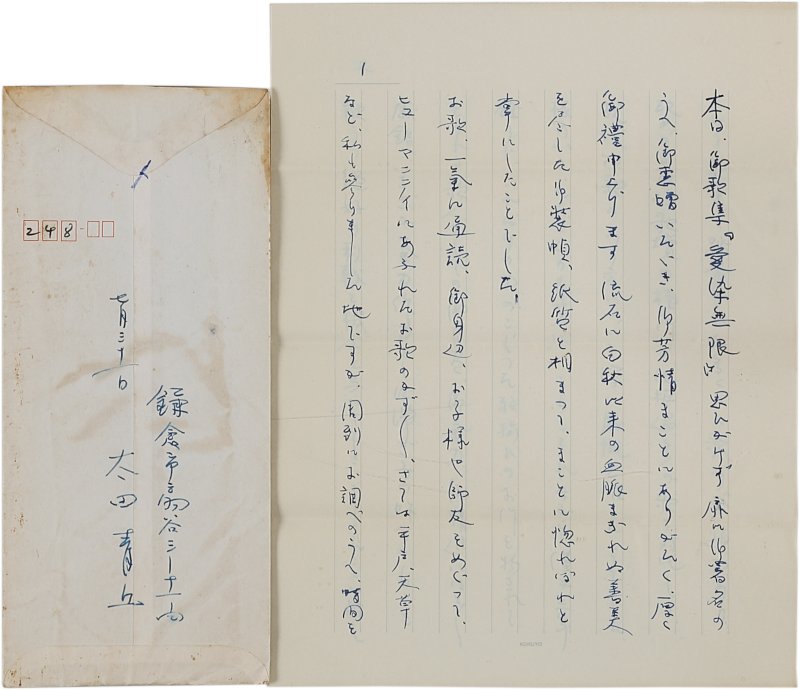 本日、御歌集『愛染無限』思ひがけず 扉に御署名の
うへ、御恵贈いたゞき、御芳情まことにありがたく、厚く
御禮申上げます 流石に白秋以来の血脈まぎれぬ善美
を尽した御装幀、紙質と相まつて、まことに惚れぼれと
にしたことでした。
お歌、一氣に通読、御身辺、お子様や師友をめぐつて、
ヒューマニティにあふれたお歌のかずかず、さては平戸、天草
など、私も参りました地ですが、周到にお調べのうへ、時間を
1
KOKUYO
〆
248
鎌倉市扇谷三ー十一
太田青丘
七月三十一日